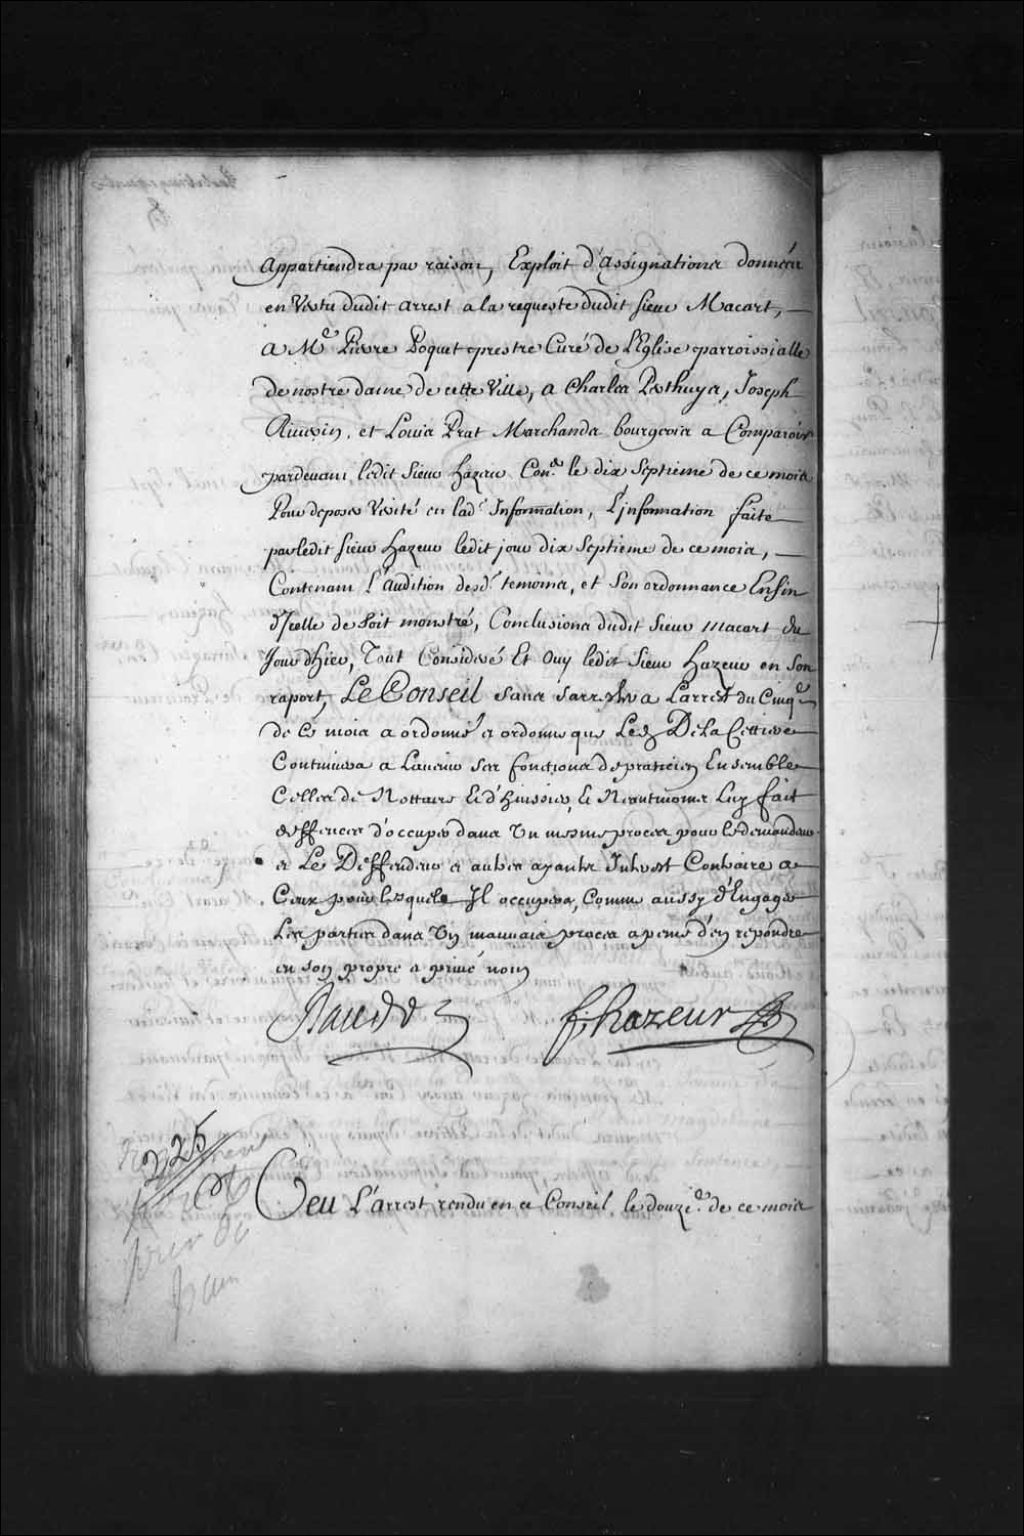 Appartiendra par raison, Exploit d'assignations données
en Vertu dudit arrest a la requeste dudit sieur Macart,
a Me Pierre Poquet prestre Curé de L'Eglise parroissialle
de nostre dame de cette Ville, a Charles Perthuys, Joseph
Riverin, et Louis Prat Marchands bourgeois a Comparoir
pardevant ledit sieur hazeur Coner le dix septieme de ce mois
Pour deposer Verité en lade Information, L'information faite
par ledit sieur hazeur ledit jour dix septieme de ce mois,
Contenant L'audition desd temoins, et son ordonnance Ensin
d'Icelle de soit monstré, Conclusions dudit sieur macart du
Jour d'hier, Tout Consideré Et Ouy ledit sieur hazeur en son
raport, Le Conseil sans s'arrester a L'arrest du Cinqe
de ce mois a ordonné et ordonne que Led De la Cettiere
Continuera a L'avenir ses fonctions de praticien Ensemble
Celles de Nottaire Et d'huissier, Et Neantmoins Luy fait
deffences d'occuper dans Un mesme proces pour le demandeur
et Le Deffendeur et autres ayants Interest Contraire a
Ceux pour lesquels Il occupera, Comme aussy d'Engager
Les parties dans Un mauvais proces a peine d'en repondre
en son propre et privé nom
Raudot f. hazeur
225
Veu L'arrest rendu en ce Conseil le douzie de ce mois